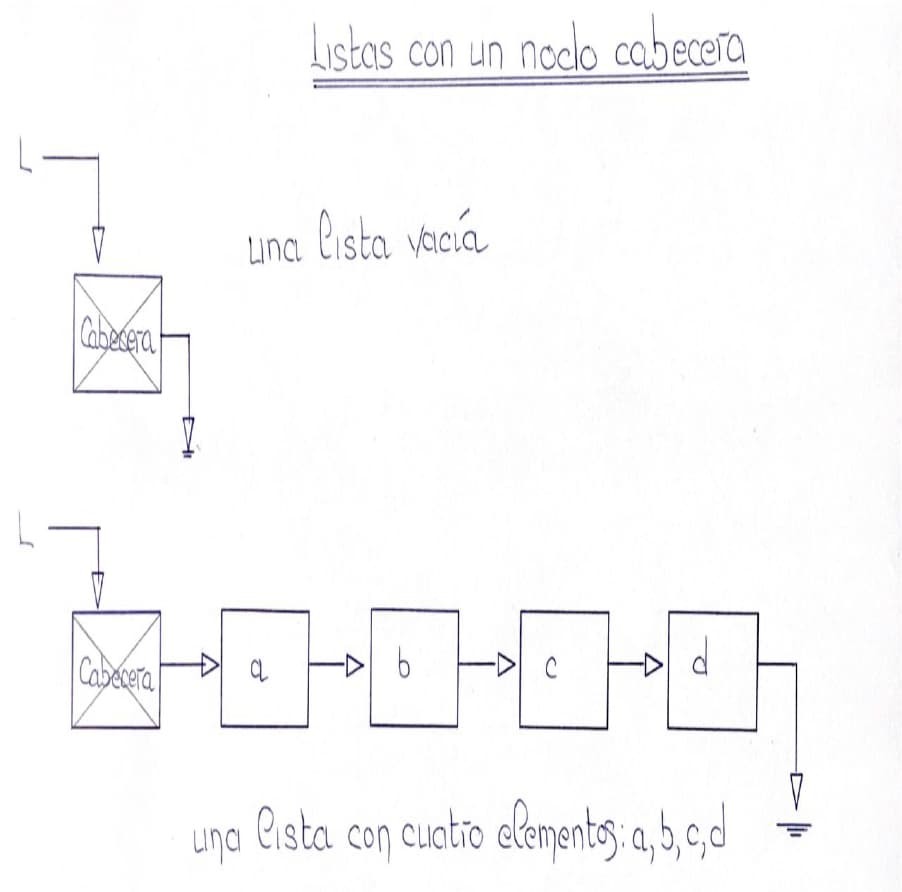 Listas con un nodo cabecera
L
una lista vacía
Cabecera
L
Cabecera
a
b
c
d
una lista con cuatro elementos: a, b, c, d